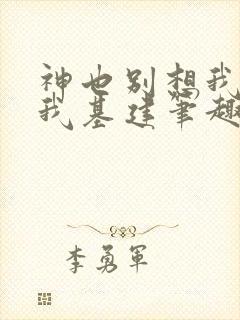 神也别想我
我基建笔趣
李勇军